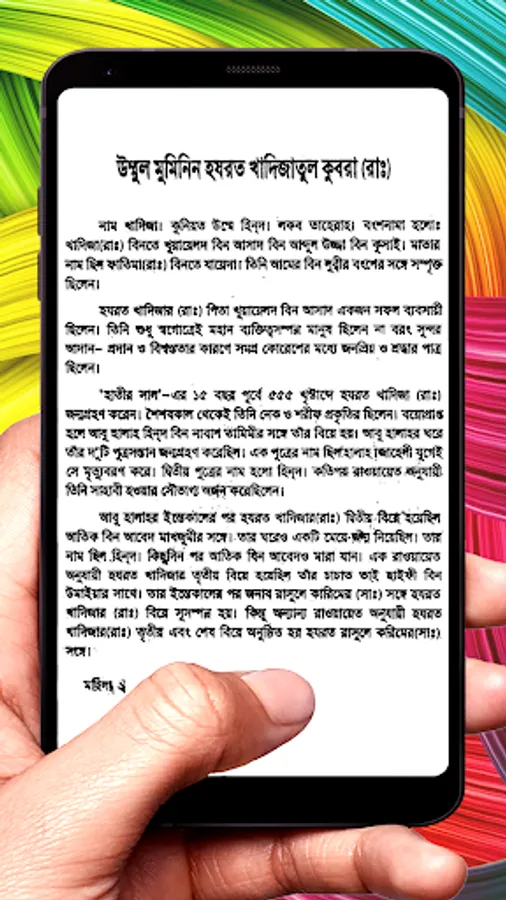 উম্মুল মুমিনিন হযরত খাদিজাতুল কুবরা (রাঃ)
নাম খাদিজা। কুনিয়ত উম্মে হিন্দ। লকব তাহেরাহ। বংশনামা হলোঃ
খাদিজা(রাঃ) বিনতে খুয়ায়েলদ বিন আসাদ বিন আব্দুল উজ্জা বিন কুসাই। মাতার
নাম ছিল ফাতিমা(রাঃ) বিনতে যায়েদা। তিনি আমের বিন লুব্বীর বংশের সঙ্গে সম্পৃক্ত
ছিলেন।
হযরত খাদিজার (রাঃ) পিতা খুয়ায়েলদ বিন আসাদ একজন সফল ব্যবসায়ী
ছিলেন। তিনি শুধু স্বগোত্রেই মহান ব্যক্তিত্বসম্পন্ন মানুষ ছিলেন না বরং সুন্দর
আদান- প্রদান ও বিশ্বস্ততার কারণে সমগ্র কোরেশের মধ্যে জনপ্রিয় ও শ্রদ্ধার পাত্র
ছিলেন।
'হাতীর সাল'-এর ১৫ বছর পূর্বে ৫৫৫ খৃষ্টাব্দে হযরত খাদিজা (রাঃ)
জন্মগ্রহণ করেন। শৈশবকাল থেকেই তিনি নেক ও শরীফ প্রকৃতির ছিলেন। বয়োপ্রাপ্ত
হলে আবু হালাহ হিন্দ বিন নাবাশ তামিমীর সঙ্গে তাঁর বিয়ে হয়। আবু হালাহর ঘরে
তাঁর দু'টি পুত্রসন্তান জন্মগ্রহণ করেছিল। এক পুত্রের নাম ছিল হালাহ। জাহেলী যুগেই
সে মৃত্যুবরণ করে। দ্বিতীয় পুত্রের নাম হলো হিন্দ। কতিপয় রাওয়ায়েত অনুযায়ী
তিনি সাহাবী হওয়ার সৌভাগ্য অর্জন করেছিলেন।
আবু হালাহর ইন্তেকালের পর হযরত খাদিজার(রাঃ) দ্বিতীয় বিয়ে হয়েছিল
আতিক বিন আবেদ মাখজুমীর সঙ্গে। তার ঘরেও একটি মেয়ে জন্ম নিয়েছিল। তার
নাম ছিল হিন্দ। কিছুদিন পর আতিক বিন আবেদও মারা যান। এক রাওয়ায়েত
অনুযায়ী হযরত খাদিজার তৃতীয় বিয়ে হয়েছিল তাঁর চাচাত ভাই ছাইফী বিন
উমাইয়ার সাথে। তার ইন্তেকালের পর জনাব রাসূলে কারিমের (সাঃ) সঙ্গে হযরত
খাদিজার (রাঃ) বিয়ে সুসম্পন্ন হয়। কিন্তু অন্যান্য রাওয়ায়েত অনুযায়ী হযরত
খাদিজার(রাঃ) তৃতীয় এবং শেষ বিয়ে অনুষ্ঠিত হয় হযরত রাসূলে করিমের(সাঃ)
সঙ্গে।